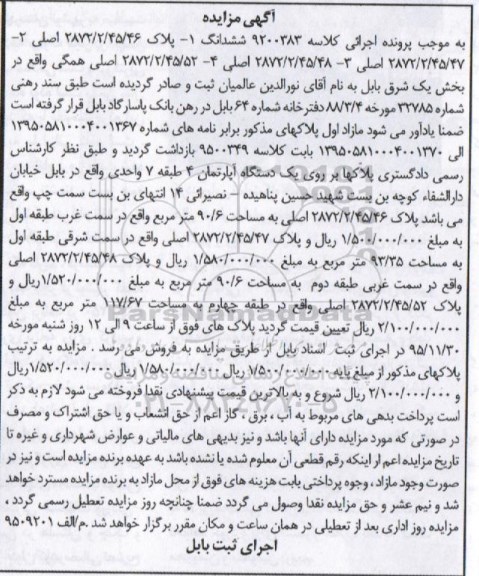 آگهی مزایده
به موجب پرونده اجرائی کلاسه ۹۲۰۰۳۸۳ ششدانگ ۱- پلاک ۲۸۷۲/۲/۴۵/۴۶ اصلی ۲-
۲۸۷۲/۲/۴۵/۴۷ اصلی ۳- ۲۸۷۲/۲/۴۵/۴۸ اصلی ۴- ۲۸۷۲/۲/۴۵/۵۲ اصلی همگی واقع در
بخش یک شرق بابل به نام آقای نورالدین عالمیان ثبت و صادر گردیده است طبق سند رهنی
شماره ۳۲۷۸۵ مورخه ۸۸/۳/۴ دفترخانه شماره ۶۴ بابل در رهن بانک پاسارگاد بابل قرار گرفته است
ضمنا یادآور می شود مازاد اول پلاکهای مذکور برابر نامه های شماره ۱۳۹۵۰۵۸۱۰۰۰۴۰۰۱۳۶۷
الی ۱۳۹۵۰۵۸۱۰۰۰۴۰۰۱۳۷۰ بابت کلاسه ۹۵۰۰۳۴۹ بازداشت گردید و طبق نظر کارشناس
رسمی دادگستری پلاکها بر روی یک دستگاه آپارتمان ۴ طبقه ۷ واحدی واقع در بابل خیابان
دارالشفاء کوچه بن بست شهید حسین پناهیده – نصیرائی ۱۴ انتهای بن بست سمت چپ واقع
می باشد پلاک ۲۸۷۲/۲/۴۵/۴۶ اصلی به مساحت ۹۰/۶ متر مربع واقع در سمت غرب طبقه اول
به مبلغ ۱/۵۰۰/۰۰۰/۰۰۰ ریال و پلاک ۲۸۷۲/۲/۴۵/۴۷ اصلی واقع در سمت شرقی طبقه اول
به مساحت ۹۲/۳۵ متر مربع به مبلغ ۱/۵۸۰/۰۰۰/۰۰۰ ریال و پلاک ۲۸۷۲/۲/۴۵/۴۸ اصلی
واقع در سمت غربی طبقه دوم به مساحت ۹۰/۶ متر مربع به مبلغ ۱/۵۲۰/۰۰۰/۰۰۰ریال و
پلاک ۲۸۷۲/۲/۴۵/۵۲ اصلی واقع در طبقه چهارم به مساحت ۱۱۷/۶۷ متر مربع به مبلغ
۲/۱۰۰/۰۰۰/۰۰۰ ریال تعیین قیمت گردید پلاک های فوق از ساعت ۹ الی ۱۲ روز شنبه مورخه
۹۵/۱۱/۳۰ در اجرای ثبت اسناد بابل از طریق مزایده به فروش می رسد . مزایده به ترتیب
پلاکهای مذکور از مبلغ پایه ۱/۵۰۰/۰۰۰/۰۰۰ریال ۱/۵۸۰/۰۰۰/۰۰۰ریال ۱/۵۲۰/۰۰۰/۰۰۰ریال
و ۲/۱۰۰/۰۰۰/۰۰۰ ریال شروع و به بالاترین قیمت پیشنهادی نقدا فروخته می شود لازم به ذکر
است پرداخت بدهی های مربوط به آب ، برق ، گاز اعم از حق انشعاب و یا حق اشتراک و مصرف
در صورتی که مورد مزایده دارای آنها باشد و نیز بدیهی های مالیاتی و عوارض شهرداری و غیره تا
تاریخ مزایده اعم از اینکه رقم قطعی آن معلوم شده یا نشده باشد به عهده برنده مزایده است و نیز در
صورت وجود مازاد ، وجوه پرداختی بابت هزینه های فوق از محل مازاد به برنده مزایده مسترد خواهد
شد و نیم عشر و حق مزایده نقدا وصول می گردد ضمنا چنانچه روز مزایده تعطیل رسمی گردد ،
مزایده روز اداری بعد از تعطیلی در همان ساعت و مکان مقرر برگزار خواهد شد .م/الف ۹۵۰۹۲۰۱
اجرای ثبت بابل
ParsNamadData